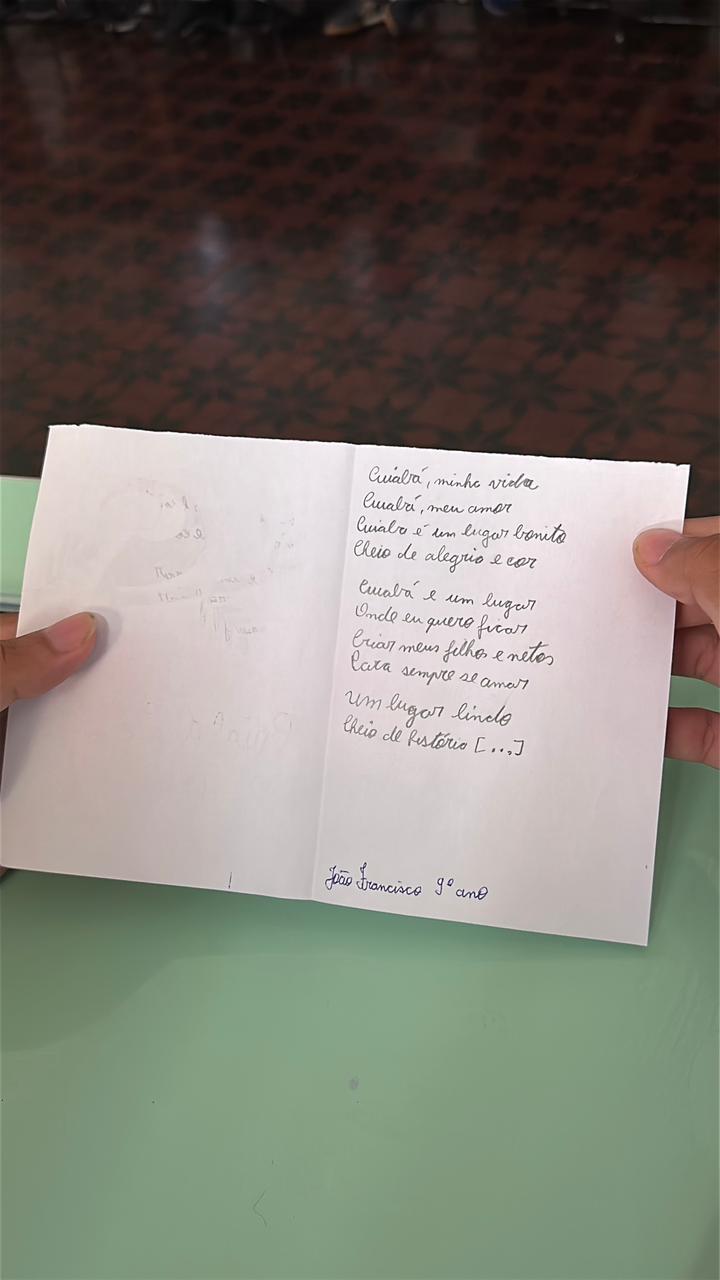 Cuiabá, minha vida
Cuiabá, meu amor
Cuiaba é um lugar bonito
Cheio de alegria e cor
Cuiabá é um lugar
Onde eu quero ficar
Criar meus filhos e netos
Para sempre se amar
Um lugar lindo
Cheio de história [...]
João Francisco 9º ano